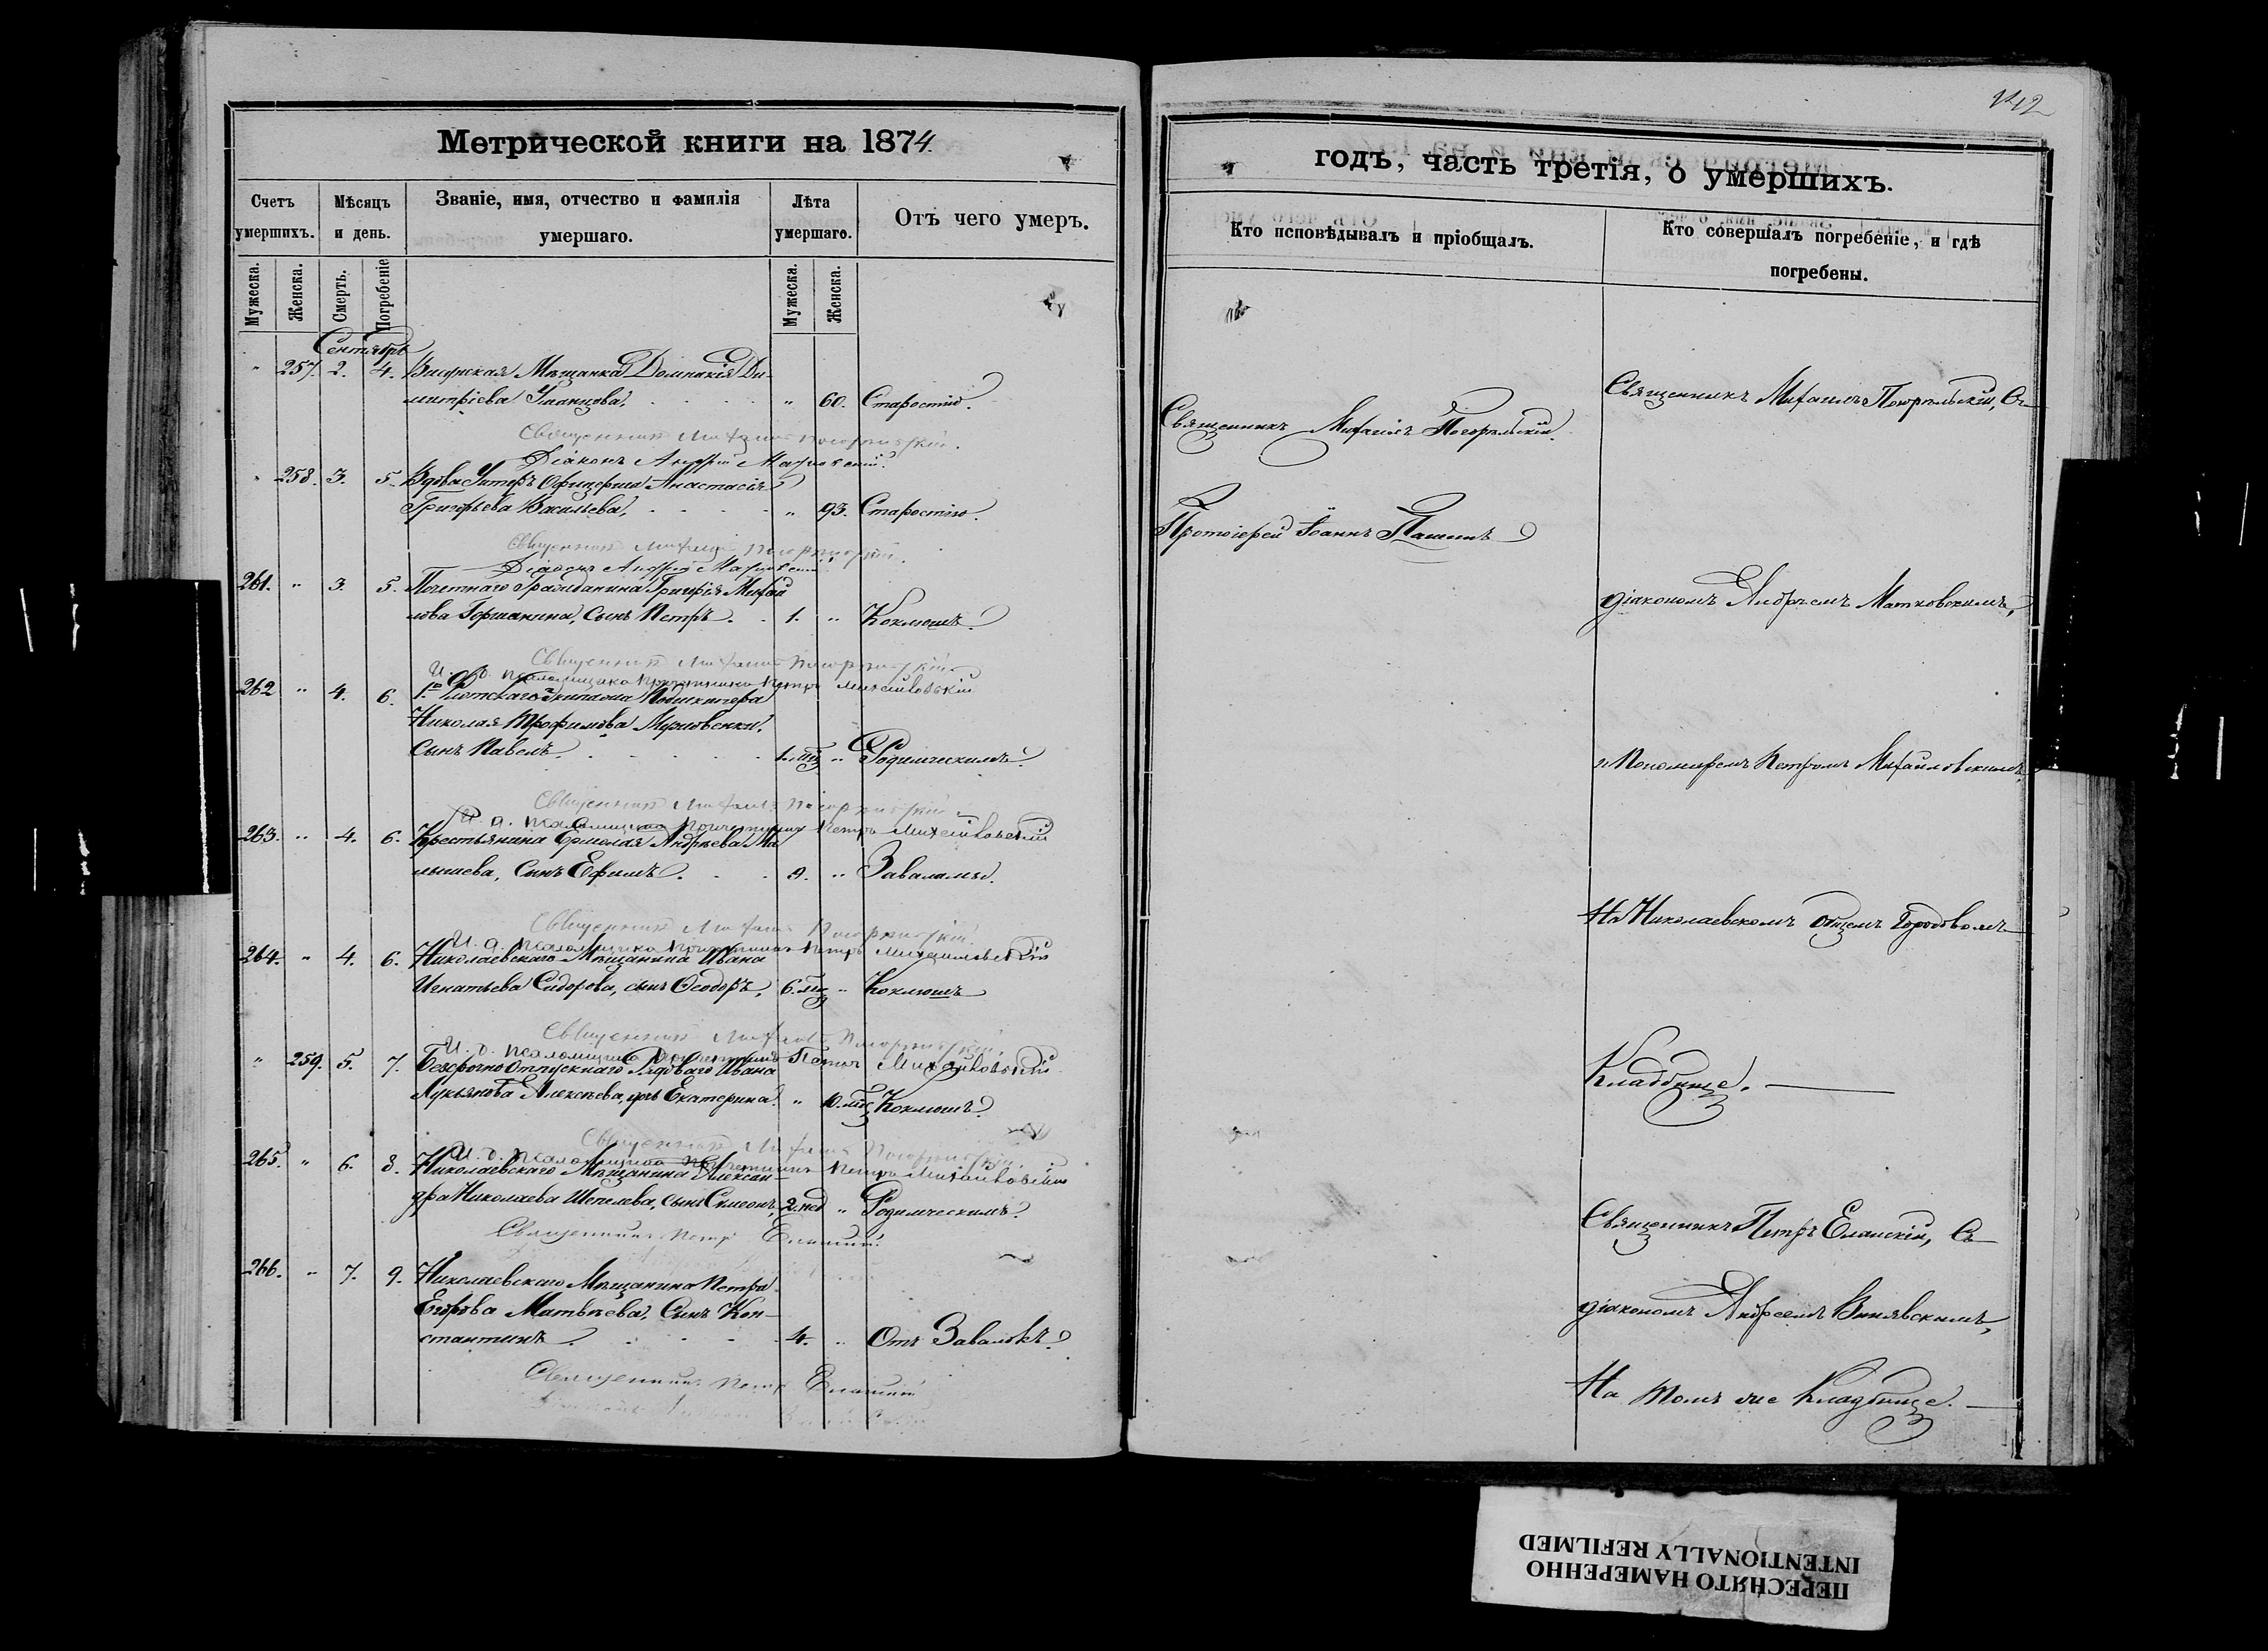 142
Метрической книги на 1874
годъ, часть третія, о умершихъ.
Счетъ умершихъ.
Мѣсяцъ и день.
Званіе, имя, отчество и фамилія умершаго.
Лѣта умершаго.
Отъ чего умеръ.
Кто исповѣдывалъ и пріобщалъ.
Кто совершалъ погребеніе, и гдѣ погребены.
Мужеска.
Женска.
Смерть.
Погребеніе
Мужеска.
Женска.
Сентябрь
" 257. 2. 4. Мѣщанка Домникія Ди-
митріева " 60. Старостію.
Священникъ Михаилъ Погорѣльскій.
Діаконъ Андрей
" 258. 3. 5. Вдова Унтеръ Офицерша Анастасія
Григорьева Васильева, " 93. Старостію.
Священникъ Михаилъ Погорѣльскій.
Діаконъ Андрей
261. " 3. 5. Почетнаго Гражданина Григорія Михай
лова Горшанина, Сынъ Петръ. 1. " Коклюшъ.
Священникъ Михаилъ Погорѣльскій
И. д. псаломщика Причетникъ Петръ Михайловскій
262 " 4. 6. 1го Флотскаго Экипажа
Николая Трофимова
Сынъ Павелъ. 1. мѣс " Родимческимъ.
Священникъ Михаилъ Погорѣльскій
И. д. псаломщика Причетникъ Петръ Михайловскій
263. " 4. 6. Крестьянина Ермолая Андрѣева Ма
лышева, Сынъ Ефимъ. 9. " Завалами.
Священникъ Михаилъ Погорѣльскій.
И. д. псаломщика Причетникъ Петръ Михайловскій
264. " 4. 6. Николаевскаго Мѣщанина Ивана
Игнатьева Сидорова, сынъ Ѳеодоръ, 6. мѣс " Коклюшъ
Священникъ Михаилъ Погорѣльскій.
И. д. псаломщика Причетникъ Петръ Михайловскій
" 259. 5. 7. Безсрочно Отпускнаго Рядоваго Ивана
Лукьянова Алексѣева, дочь Екатерина. " 10. мѣс Коклюшъ.
Священникъ Михаилъ Погорѣльскій.
И. д. псаломщика Причетникъ Петръ Михайловскій
265. " 6. 8. Николаевскаго Мѣщанина Алексан-
дра Николаева Шепелева, сынъ Симеонъ, 2. нед " Родимческимъ.
Священникъ Петръ Еланскій.
266. " 7. 9. Николаевскаго Мѣщанина Петра
Егорова Матвѣева, Сынъ Кон-
стантинъ. 4. " Отъ Заваловъ.
Священникъ Петръ Еланскій
Священникъ Михаилъ Погорѣльскій.
Протоіерей Іоаннъ Пашинъ
Священникъ Михаилъ Погорѣльскій, Съ
діакономъ Андреемъ Матковскимъ,
и Пономаремъ Петромъ Михайловскимъ,
На Николаевскомъ Общемъ Городовомъ
Кладбище.
Священникъ Петръ Еланскій, Съ
діакономъ Андреемъ Винявскимъ,
На томъ же Кладбище.
ПЕРЕСНЯТО НАМЕРЕННО
INTENTIONALLY REFILMED